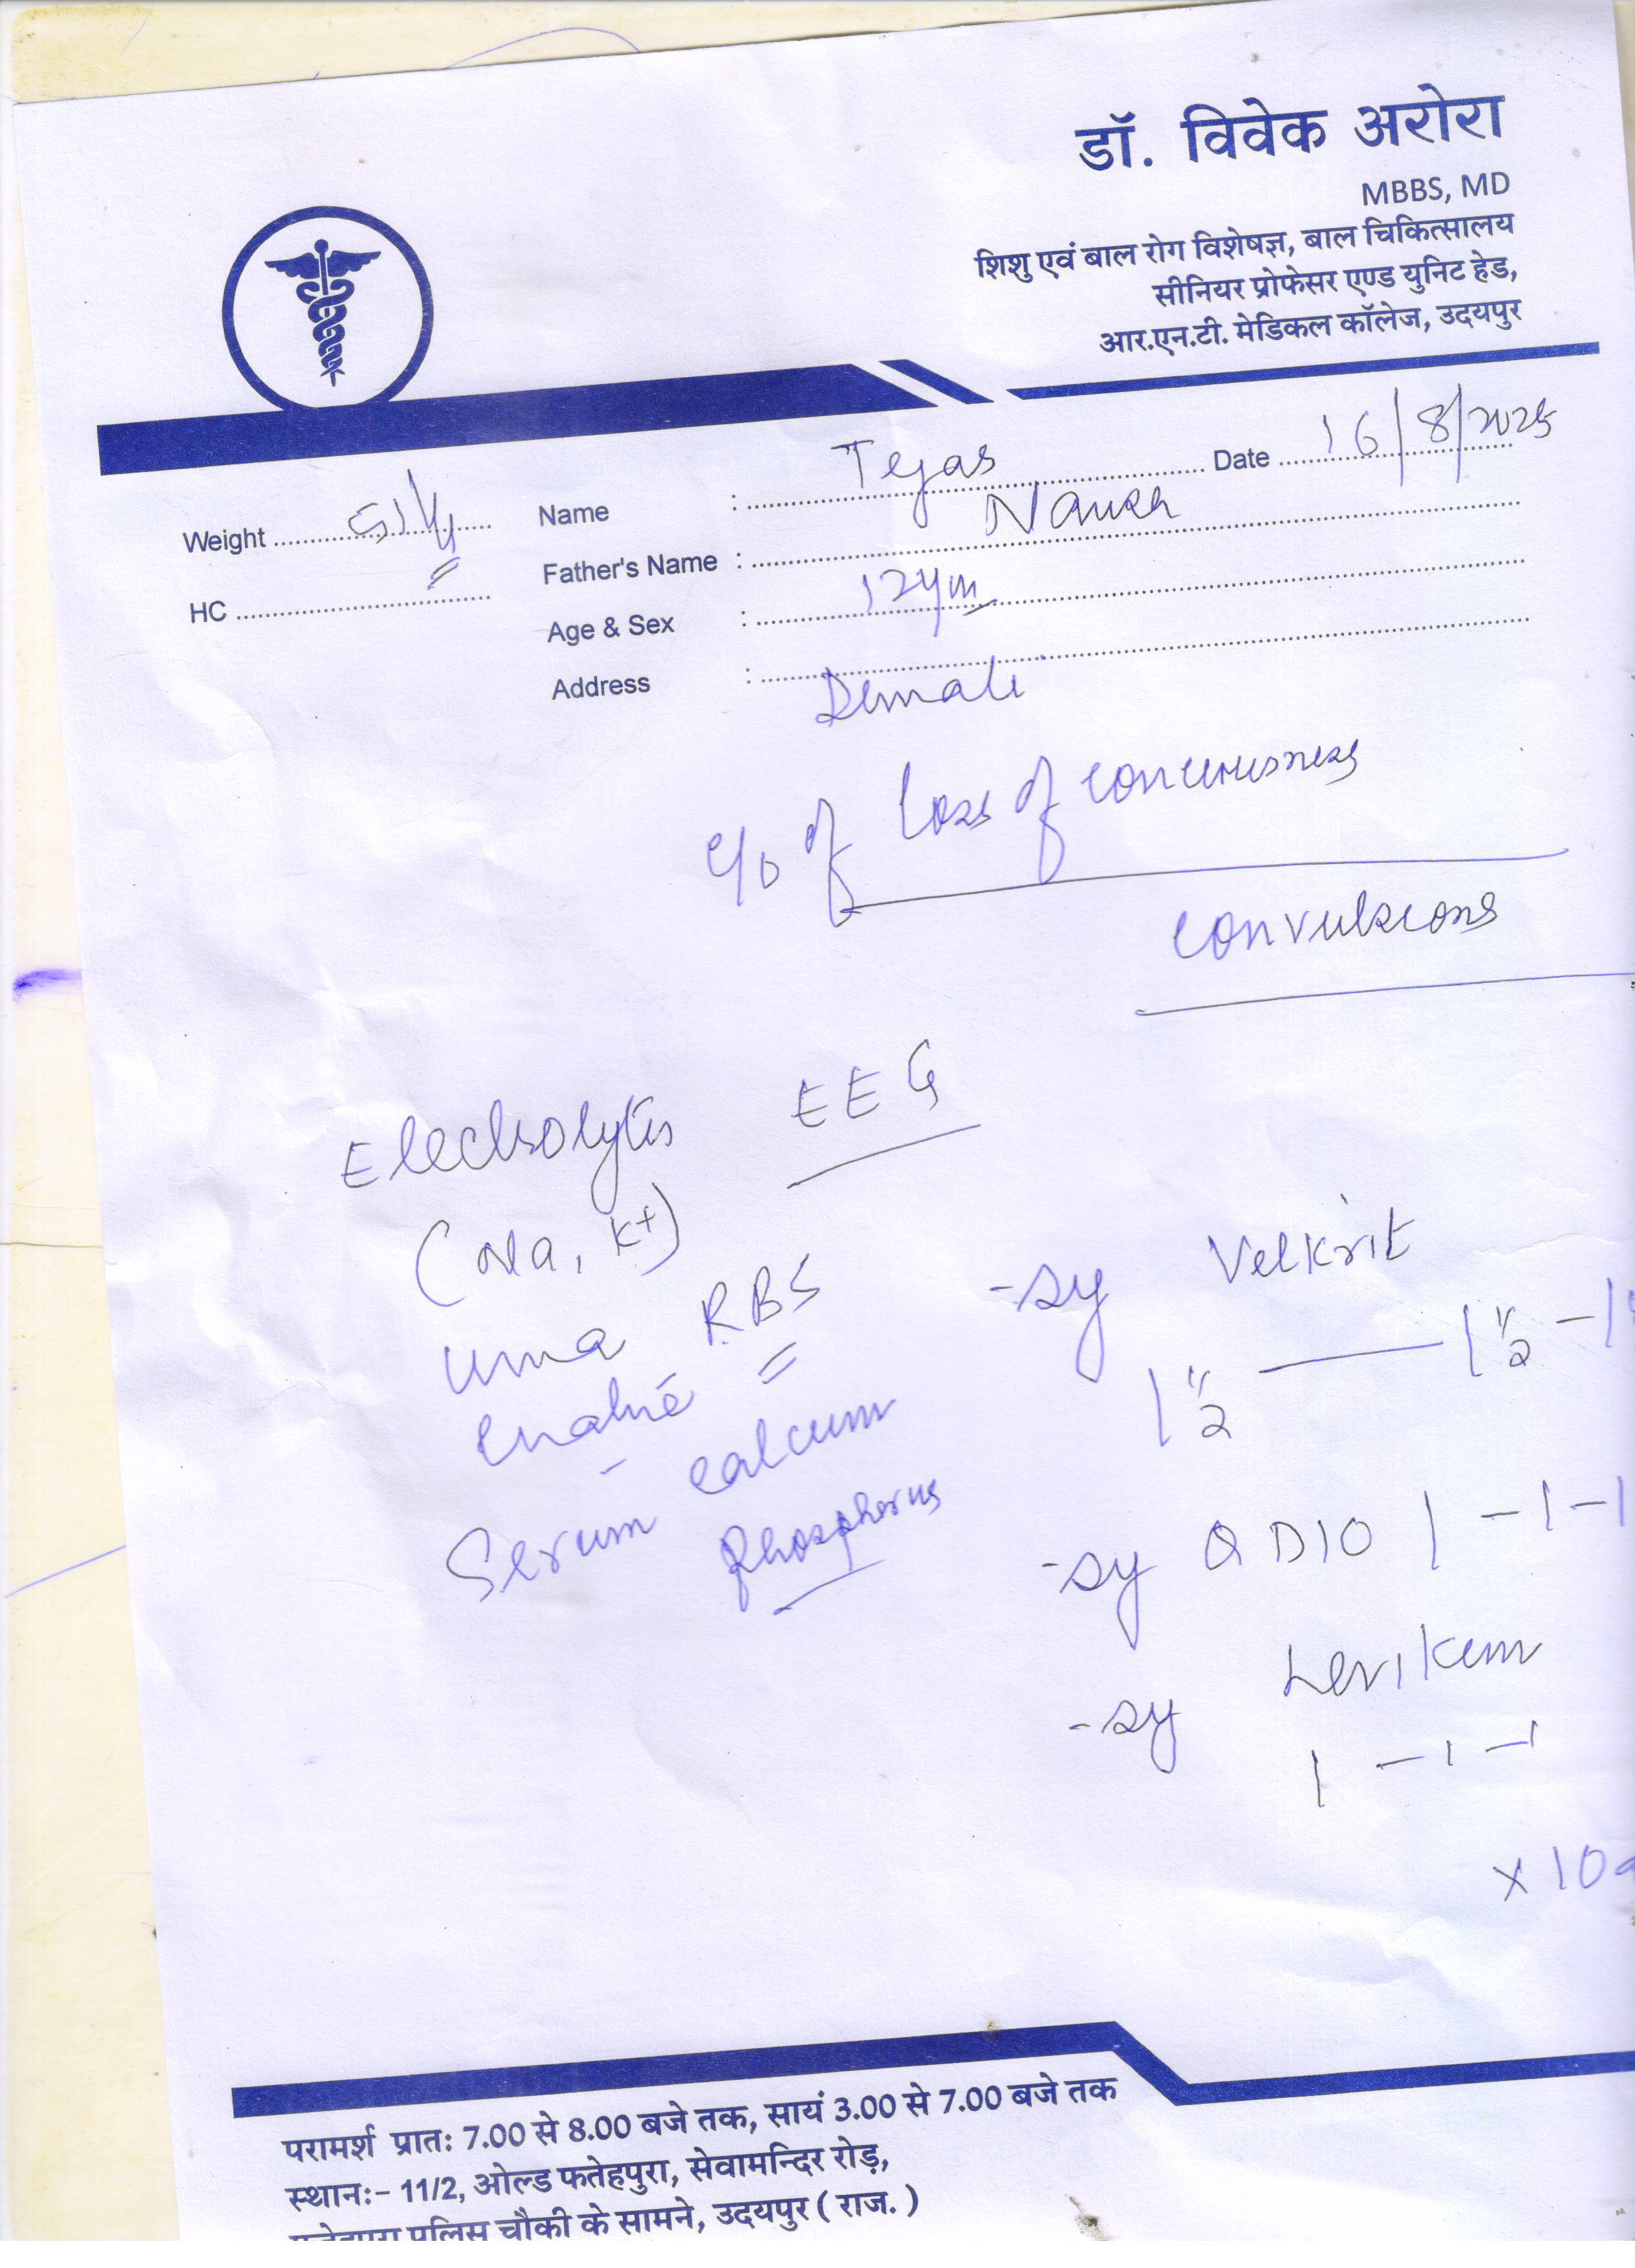 डॉ. विवेक अरोरा
MBBS, MD
शिशु एवं बाल रोग विशेषज्ञ, बाल चिकित्सालय
सीनियर प्रोफेसर एण्ड युनिट हेड,
आर.एन.टी. मेडिकल कॉलेज, उदयपुर
Weight
Name : Tejas Date 16/8/2025
HC
Father's Name :
Age & Sex : 12ym
Address :
c/o of Loss of
convulsions
EEG
(Na, K+)
RBS
Serum calcum
phosphorus
-sy Velkrit
1 1/2 — 1 1/2 -
-sy QD10 1 - 1 - 1
-sy Levikem
1 - 1 - 1
परामर्श प्रातः 7.00 से 8.00 बजे तक, सायं 3.00 से 7.00 बजे तक
स्थान:- 11/2, ओल्ड फतेहपुरा, सेवामन्दिर रोड़,
पुलिस चौकी के सामने, उदयपुर ( राज. )